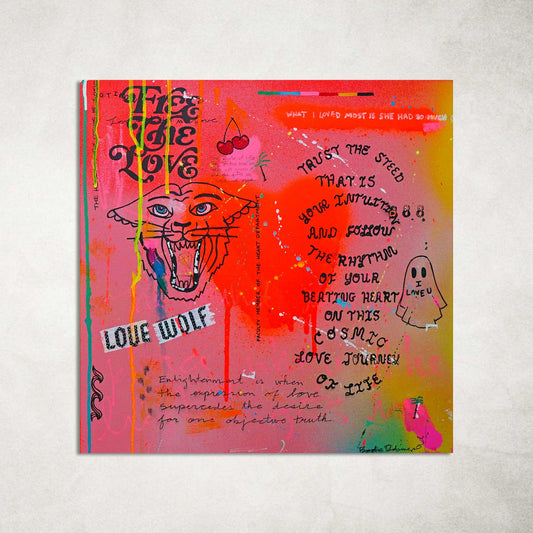 FREE
THE
LOVE
WHAT I LOVED MOST IS SHE HAD SO MUCH
TRUST THE STEED
THAT IS
YOUR INTUITION
AND FOLLOW
THE RHYTHM
OF YOUR
BEATING HEART
ON THIS
COSMIC
LOVE JOURNEY
OF LIFE
8.8.
I
LOVE U
FACULTY MEMBER OF THE HEART DEPARTMENT
LOVE WOLF
Enlightenment is when
the expression of love
supercedes the desire
for one objective truth